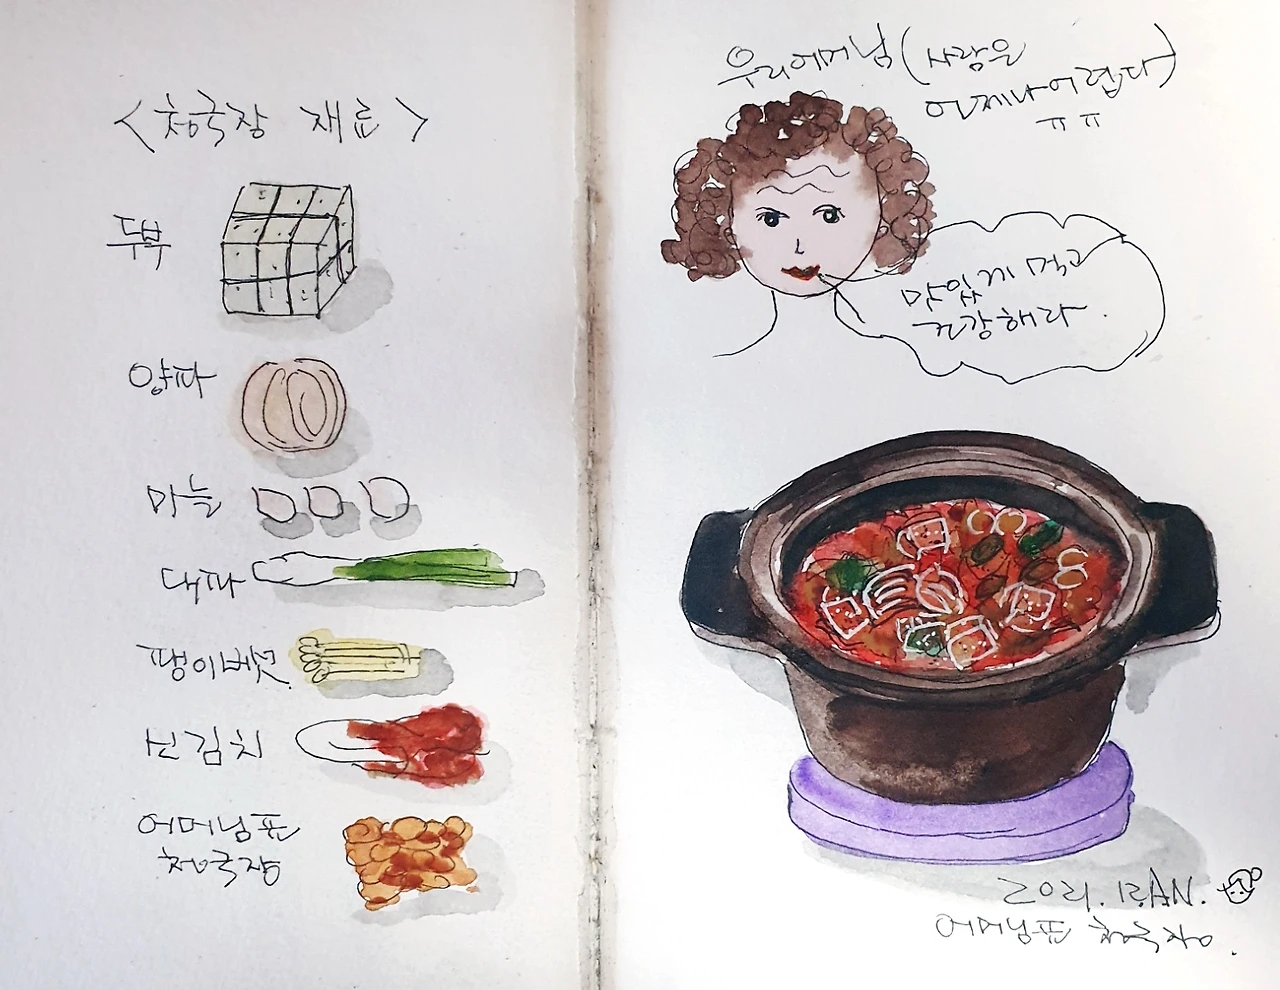 <청국장 재료>
두부
양파
마늘
대파
팽이버섯.
신김치
어머님표
청국장
우리어머님(사랑은
언제나어렵다)
ㅠㅠ
맛있게 먹고
건강해라.
어머님표 청국장.